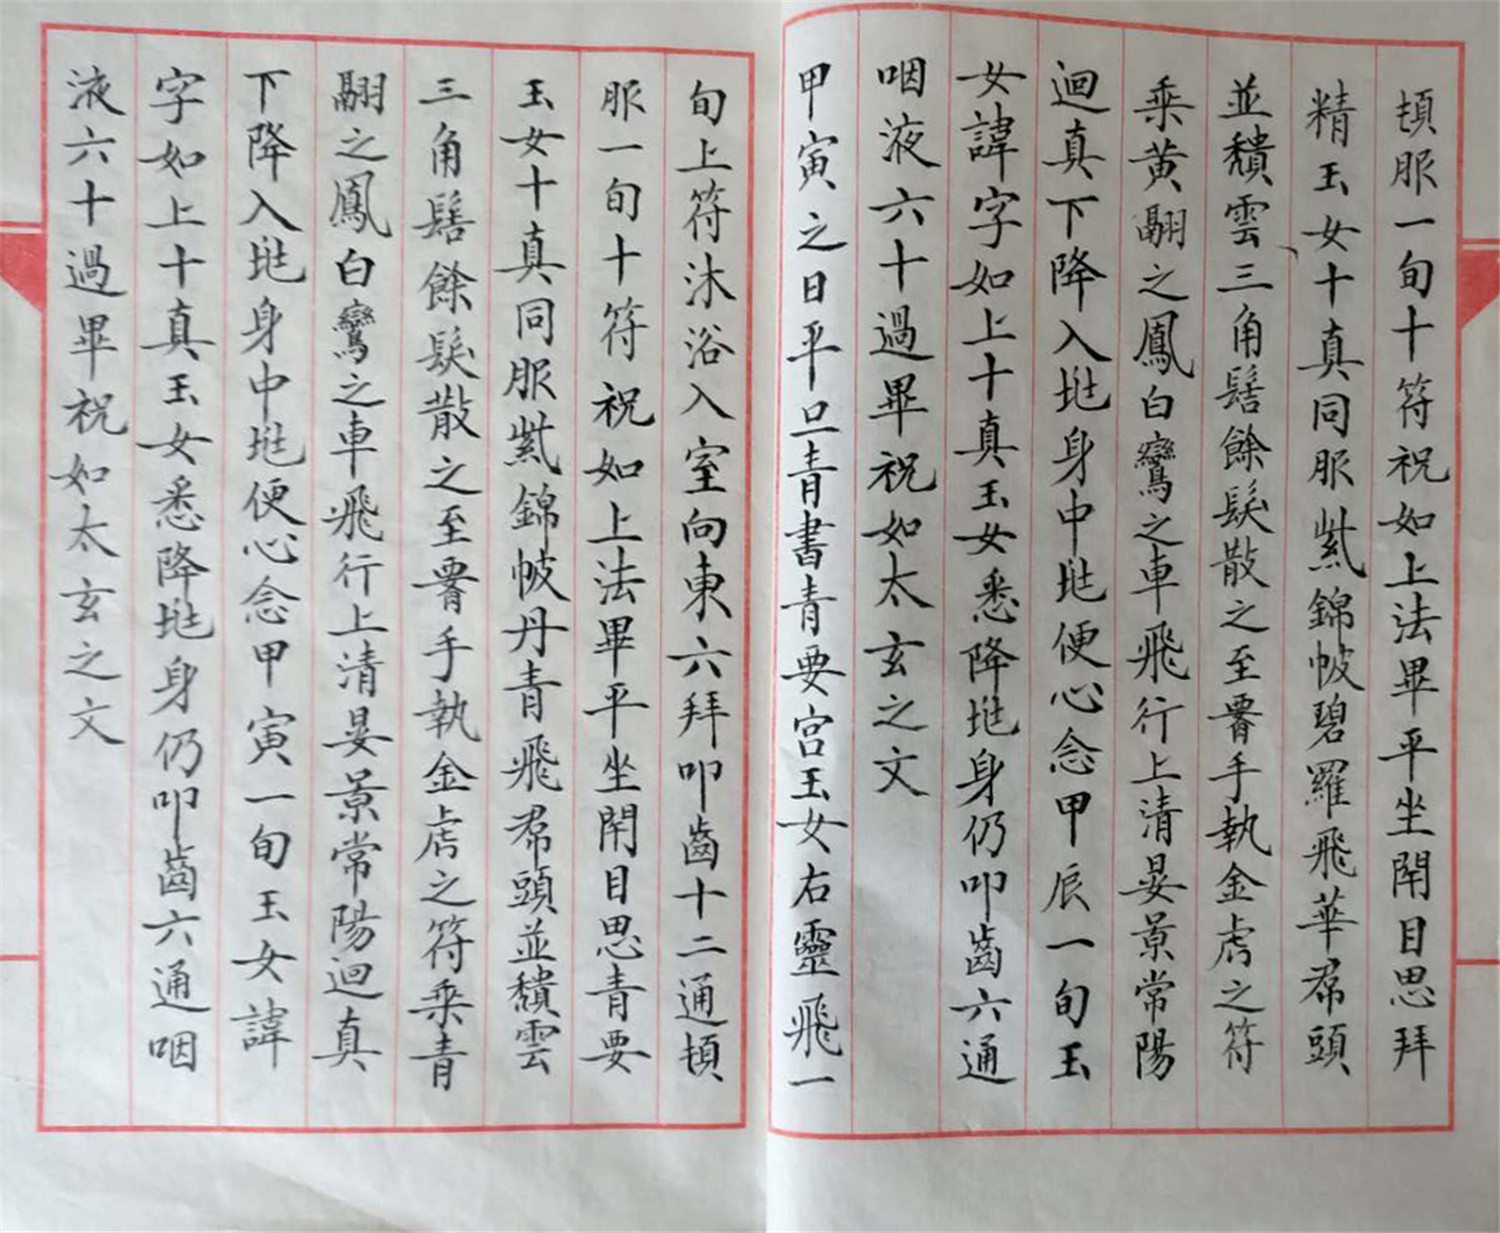 頓服一旬十符祝如上法畢平坐閇目思拜
精玉女十真同服紫錦帔碧羅飛華帬頭
並穨雲三角髻餘髮散之至㬱手執金虎之符
乘黃翮之鳳白鸞之車飛行上清晏景常陽
迴真下降入𡉴身中𡉴便心念甲辰一旬玉
女諱字如上十真玉女悉降𡉴身仍叩齒六通
咽液六十過畢祝如太玄之文
甲寅之日平旦青書青要宮玉女右靈飛一
旬上符沐浴入室向東六拜叩齒十二通頓
服一旬十符祝如上法畢平坐閇目思青要
玉女十真同服紫錦帔丹青飛帬頭並穨雲
三角髻餘髮散之至㬱手執金虎之符乘青
翮之鳳白鸞之車飛行上清晏景常陽迴真
下降入𡉴身中𡉴便心念甲寅一旬玉女諱
字如上十真玉女悉降𡉴身仍叩齒六通咽
液六十過畢祝如太玄之文